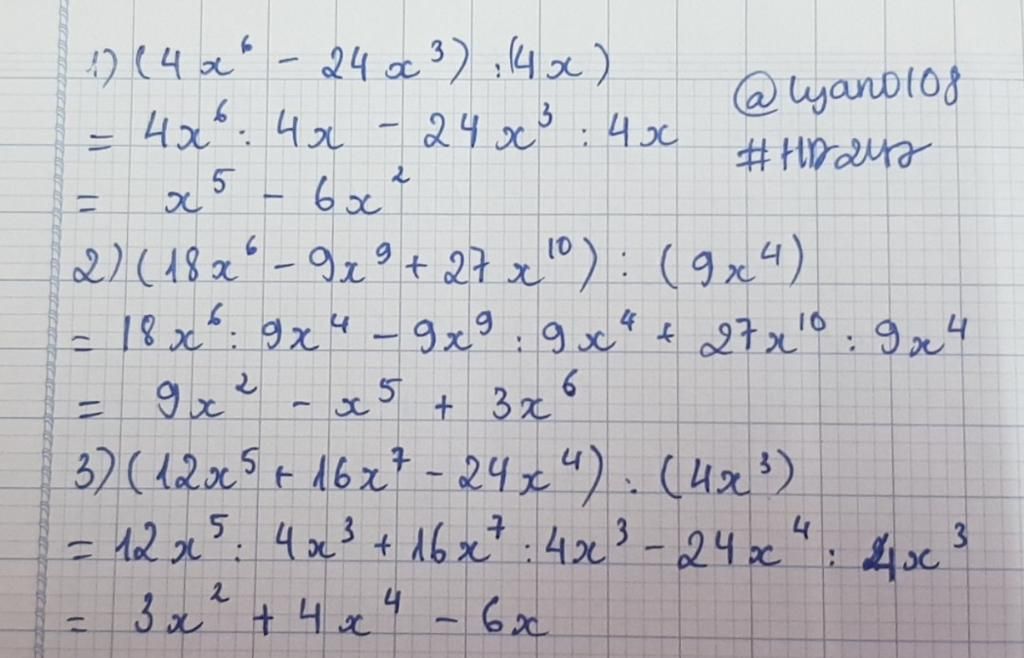 1) (4x⁶ - 24x³) : (4x)
= 4x⁶ : 4x - 24x³ : 4x
= x⁵ - 6x²
@lyan0108
#HD247
2) (18x⁶ - 9x⁹ + 27x¹⁰) : (9x⁴)
= 18x⁶ : 9x⁴ - 9x⁹ : 9x⁴ + 27x¹⁰ : 9x⁴
= 9x² - x⁵ + 3x⁶
3) (12x⁵ + 16x⁷ - 24x⁴) : (4x³)
= 12x⁵ : 4x³ + 16x⁷ : 4x³ - 24x⁴ : 4x³
= 3x² + 4x⁴ - 6x